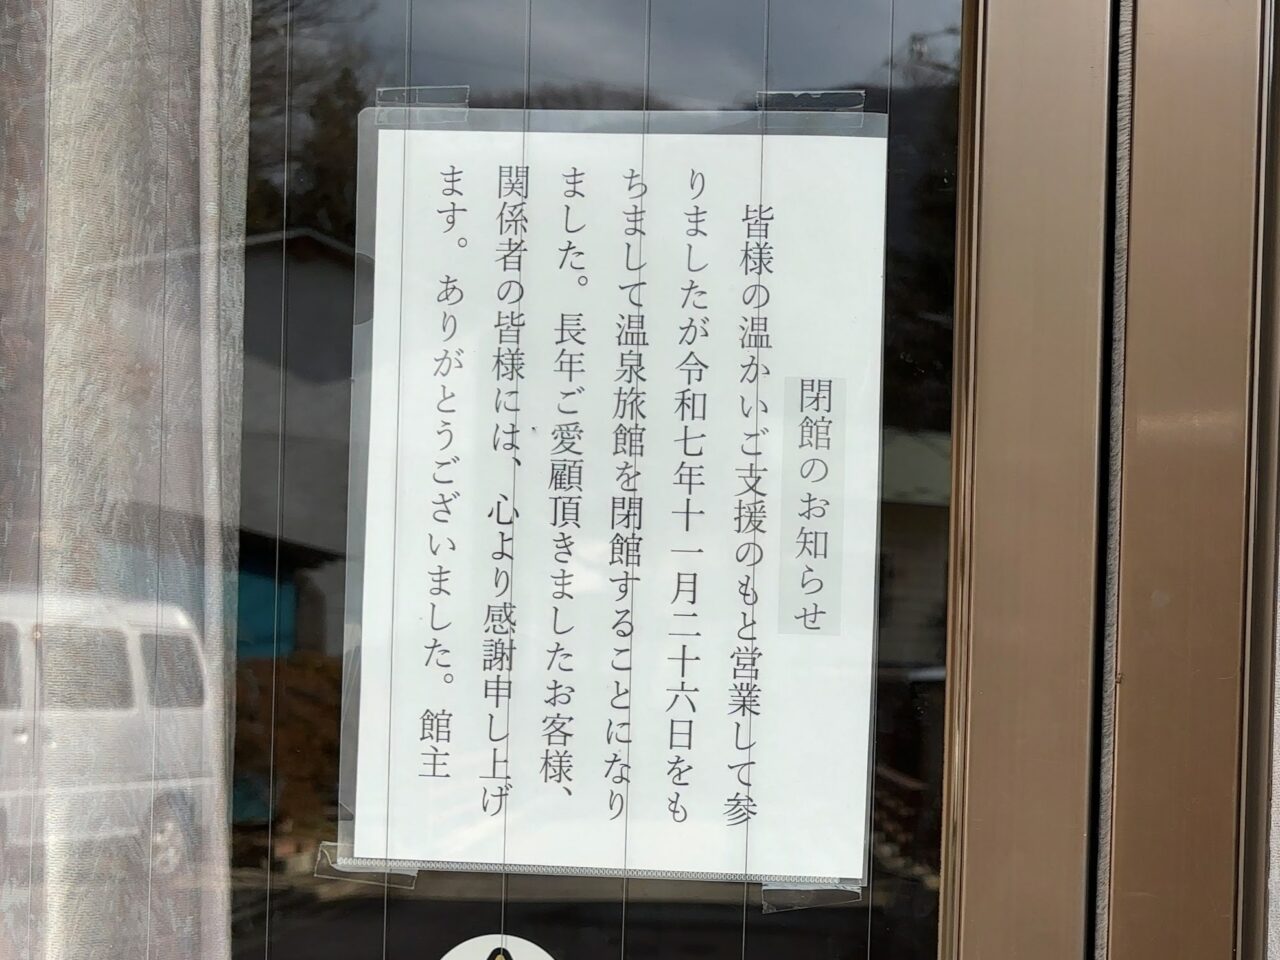 閉館のお知らせ
皆様の温かいご支援のもと営業して参
りましたが令和七年十一月二十六日をも
ちまして温泉旅館を閉館することになり
ました。長年ご愛顧頂きましたお客様、
関係者の皆様には、心より感謝申し上げ
ます。ありがとうございました。館主